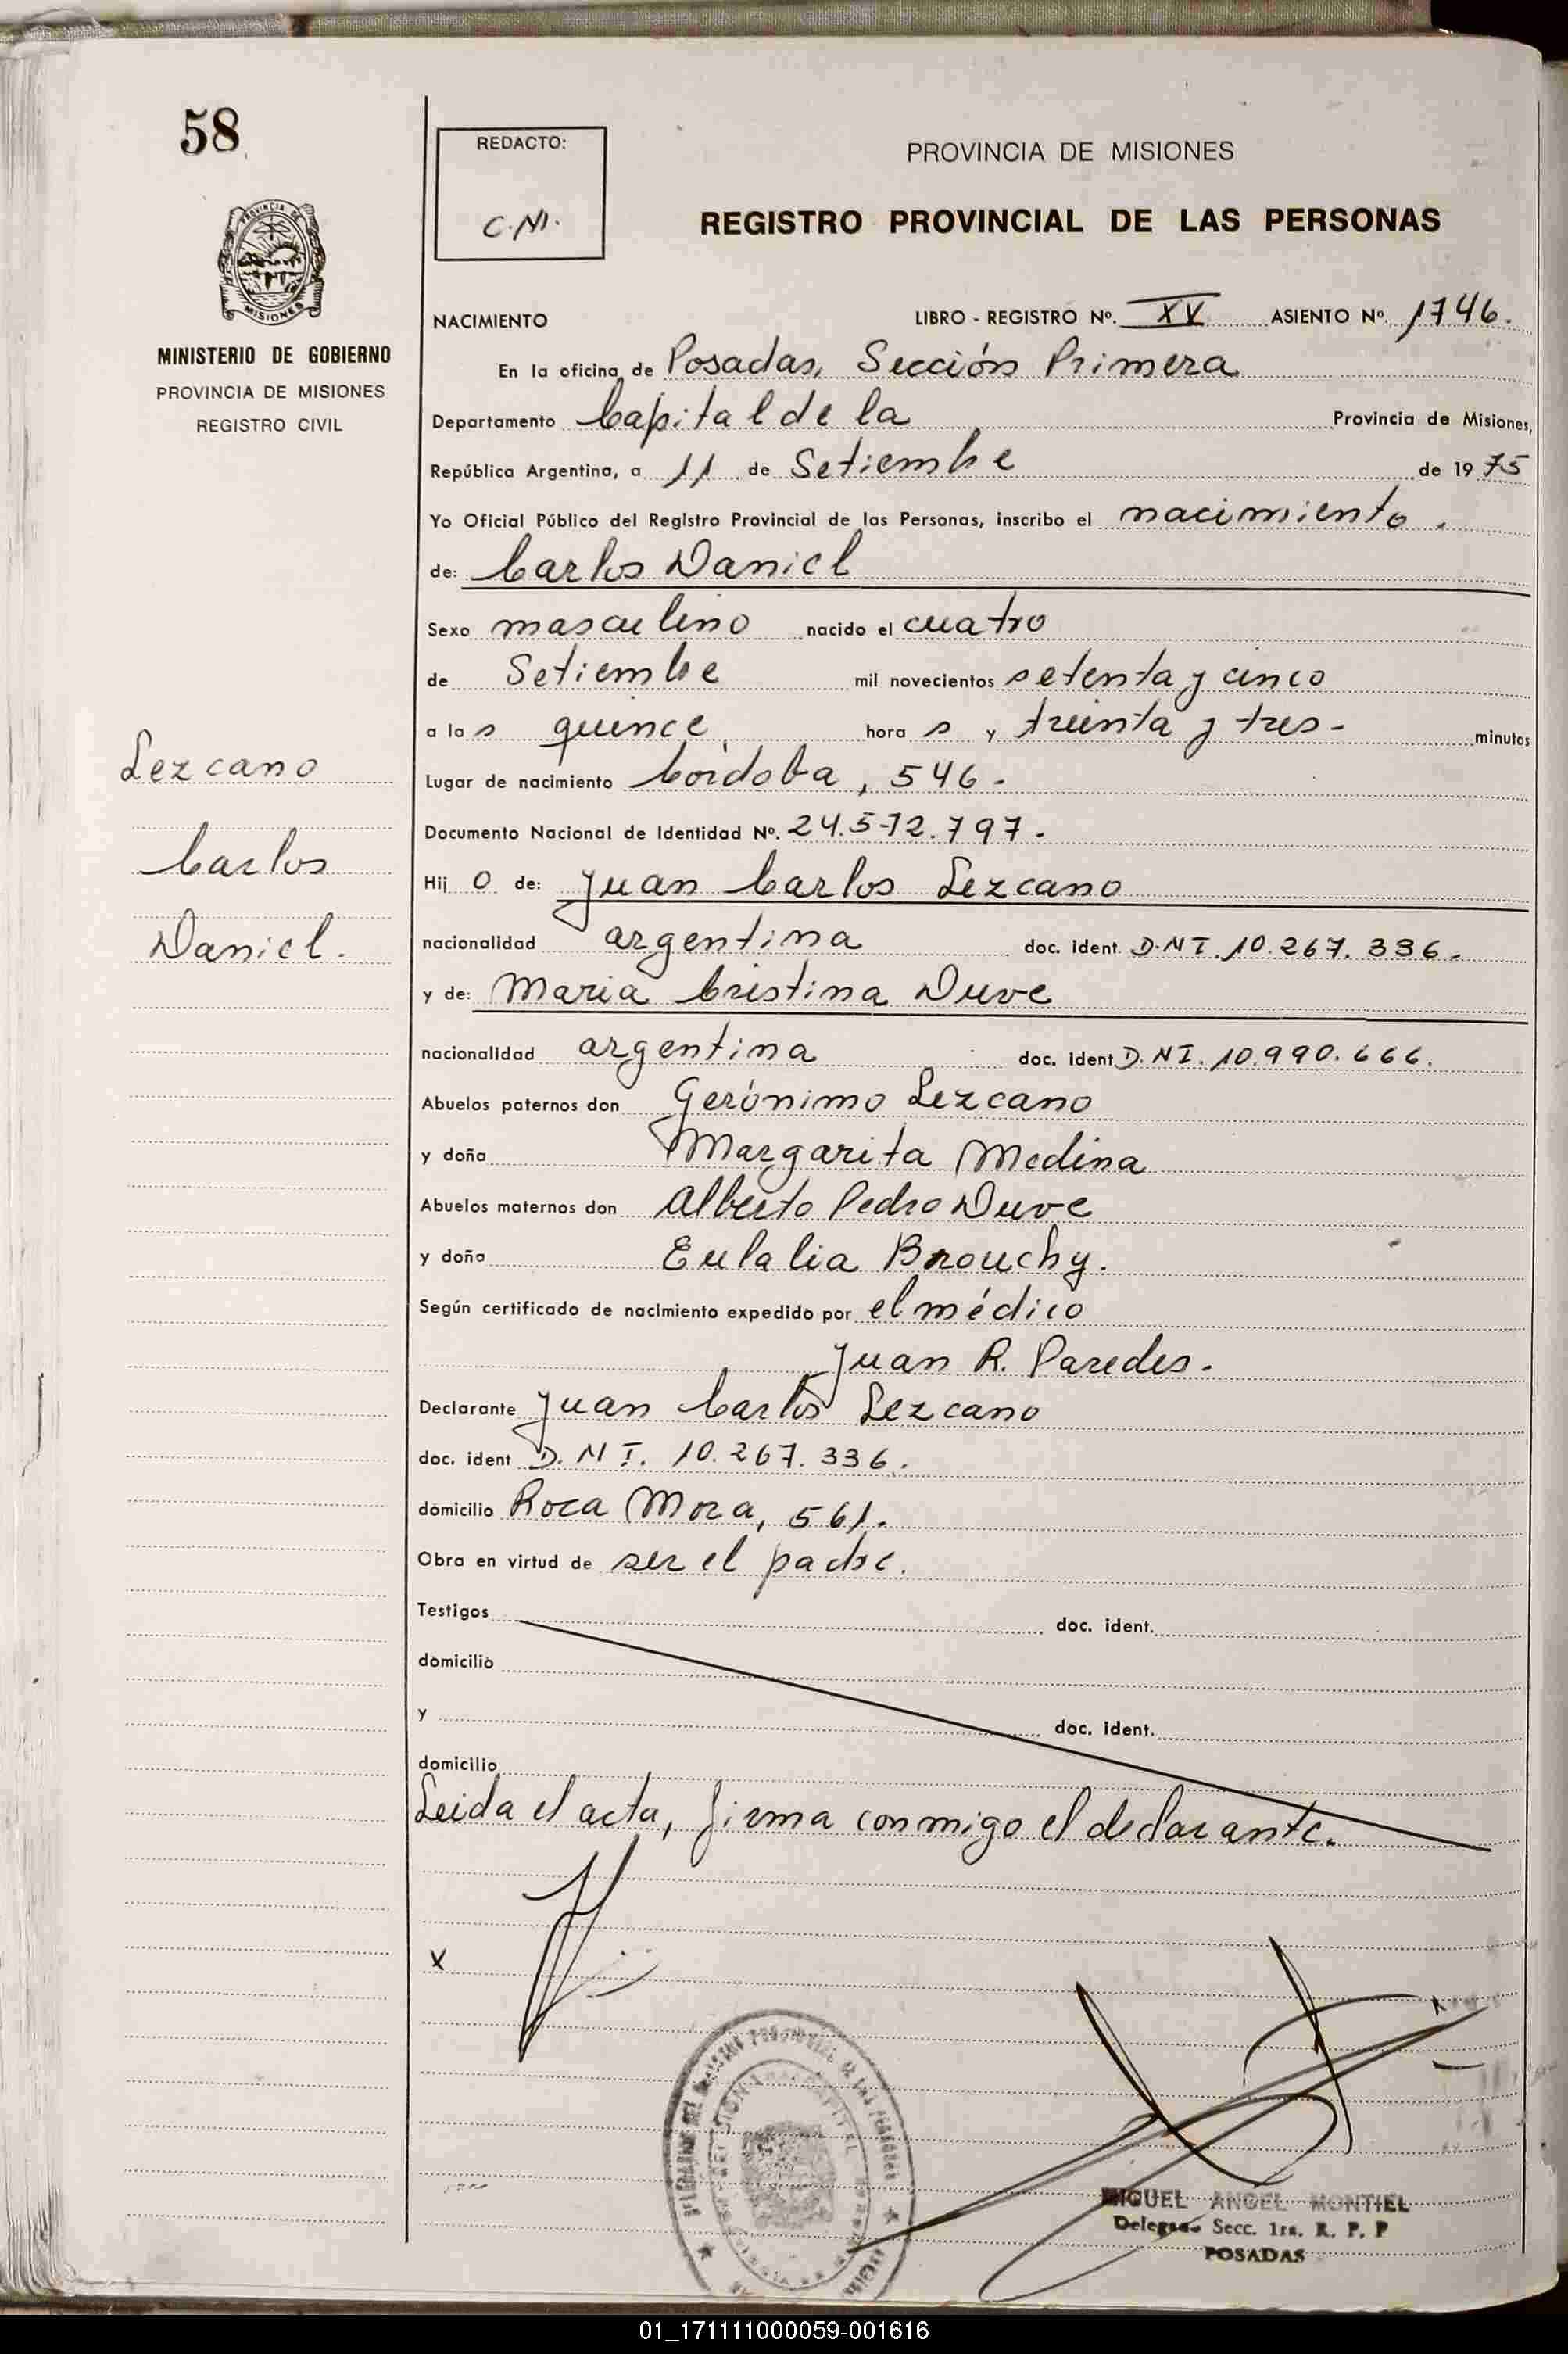 58
REDACTO:
C.M.
PROVINCIA DE MISIONES
REGISTRO PROVINCIAL DE LAS PERSONAS
PROVINCIA DE
MISIONES
MINISTERIO DE GOBIERNO
PROVINCIA DE MISIONES
REGISTRO CIVIL
NACIMIENTO LIBRO - REGISTRO Nº. XV ASIENTO Nº. 1746.
En la oficina de Posadas, Sección Primera
Departamento Capital de la Provincia de Misiones,
República Argentina, a 11 de Setiembre de 1975
Yo Oficial Público del Registro Provincial de las Personas, inscribo el nacimiento.
de: Carlos Daniel
Sexo masculino nacido el cuatro
de Setiembre mil novecientos setenta y cinco
a las quince hora s y treinta y tres- minutos
Lezcano
Lugar de nacimiento Córdoba, 546.
Documento Nacional de Identidad Nº. 24.572.797.
Carlos
Hij o de: Juan Carlos Lezcano
Daniel.
nacionalidad argentina doc. ident. D.N.I. 10.267.336.
y de: Maria Cristina Duve
nacionalidad argentina doc. ident. D.N.I. 10.990.666.
Abuelos paternos don Gerónimo Lezcano
y doña Margarita Medina
Abuelos maternos don Alberto Pedro Duve
y doña Eulalia Brouchy.
Según certificado de nacimiento expedido por el médico
Juan R. Paredes.
Declarante Juan Carlos Lezcano
doc. ident D.N.I. 10.267.336.
domicilio Roca Mora, 561.
Obra en virtud de ser el padre.
Testigos doc. ident.
domicilio
y doc. ident.
domicilio
Leida el acta, firma conmigo el declarante.
X
MIGUEL ANGEL MONTIEL
Delegado Secc. 1ra. R. P. P
POSADAS
01_171111000059-001616